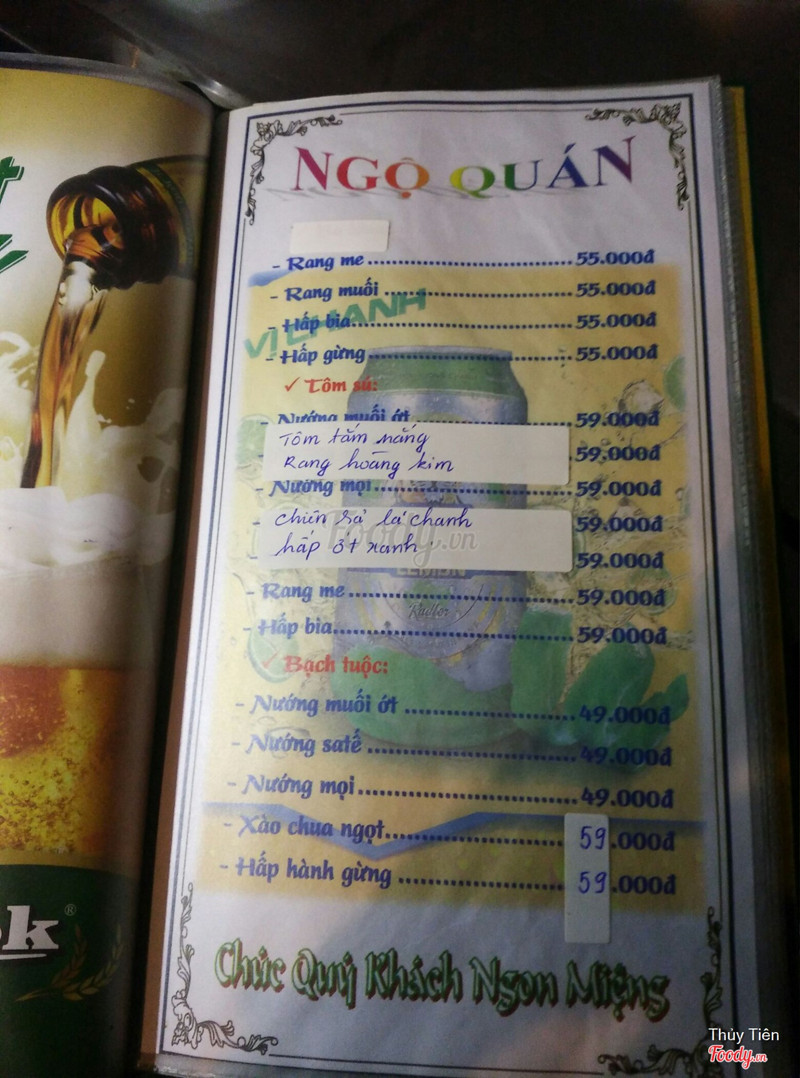 NGỘ QUÁN
- Rang me 55.000đ
- Rang muối 55.000đ
VỊ CHANH
- Hấp bia 55.000đ
- Hấp gừng 55.000đ
✓ Tôm sú:
- Nướng muối ớt 59.000đ
Tôm tắm nắng 59.000đ
Rang hoàng kim
- Nướng mọi 59.000đ
- Chiên sả lá chanh 59.000đ
hấp ớt xanh 59.000đ
Foody.vn
LEMON
Radler
- Rang me 59.000đ
- Hấp bia 59.000đ
✓ Bạch tuộc:
- Nướng muối ớt 49.000đ
- Nướng satế 49.000đ
- Nướng mọi 49.000đ
- Xào chua ngọt 59.000đ
- Hấp hành gừng 59.000đ
Chúc Quý Khách Ngon Miệng
Thủy Tiên
Foody.vn